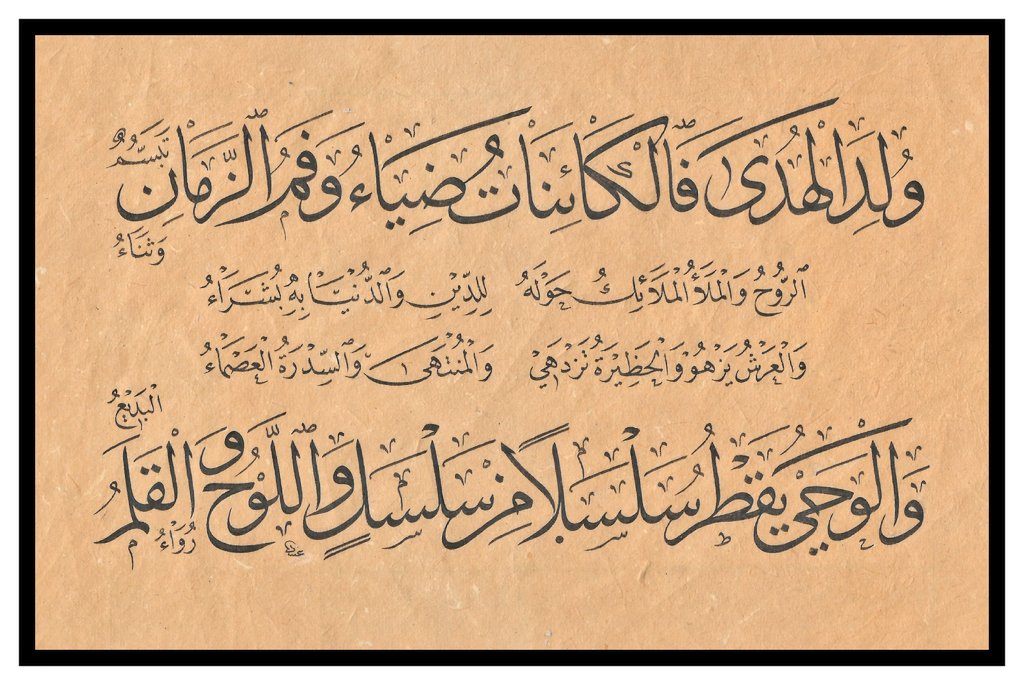 وُلِدَ الْهُدَى فَالْكَائِنَاتُ ضِيَاءُ وَفَمُ الزَّمَانِ تَبَسُّمٌ وَثَنَاءُ
الرُّوحُ وَالْمَلَأُ الْمَلَائِكُ حَوْلَهُ لِلدِّيْنِ وَالدُّنْيَا بِهِ بُشَرَاءُ
وَالْعَرْشُ يَزْهُوْ وَالْحَظِيْرَةُ تَزْدَهِيْ وَالْمُنْتَهَى وَالسِّدْرَةُ الْعَصْمَاءُ
وَالْوَحْيُ يَقْطُرُ سَلْسَلًا مِنْ سَلْسَلٍ وَاللَّوْحُ وَالْقَلَمُ الْبَدِيْعُ رُوَاءُ